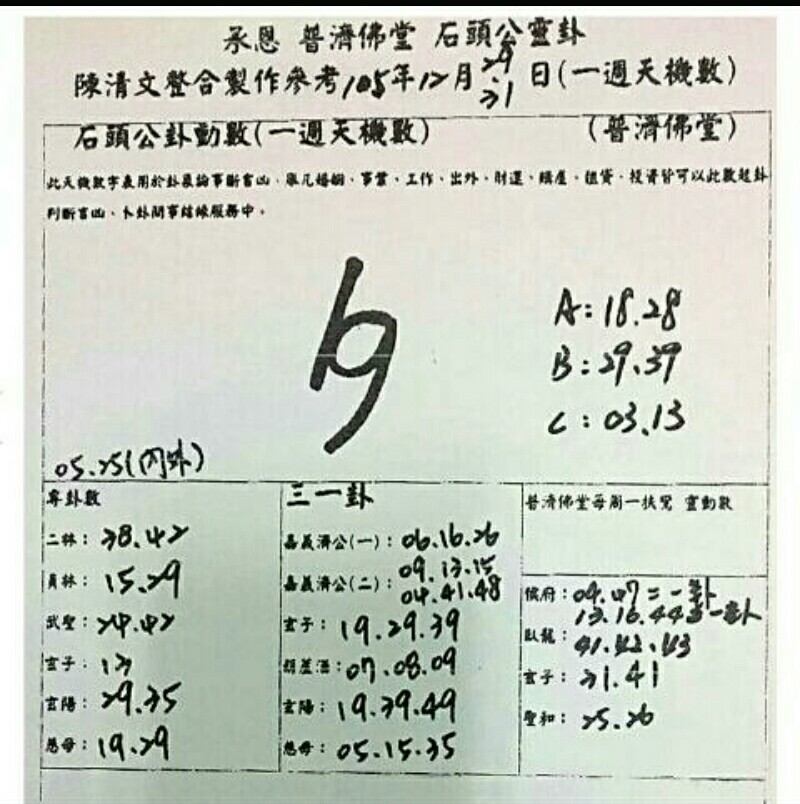 承恩 普濟佛堂 石頭公靈卦
陳清文整合製作參考105年12月29.31日(一週天機數)
石頭公卦動數(一週天機數) (普濟佛堂)
此天機數字表用於卦裏論事斷吉凶、舉凡婚姻、事業、工作、出外、財運、購產、租賃、投資皆可以此數起卦
判斷吉凶、卜卦問事結緣服務中。
A:18.28
B:29.39
C:03.13
05.25(內外)
專卦數
二林:38.42
員林:15.29
武聖:24.42
玄子:13
玄陽:29.35
慈母:19.29
三一卦
嘉義濟公(一):06.16.26
嘉義濟公(二):09.13.15
04.41.48
玄子:19.29.39
葫蘆酒:07.08.09
玄陽:19.39.49
慈母:05.15.35
普濟佛堂每周一扶鸞 靈動數
候府:04.47二一卦
13.16.44三一卦
臥龍:41.42.43
玄子:31.41
聖和:25.26